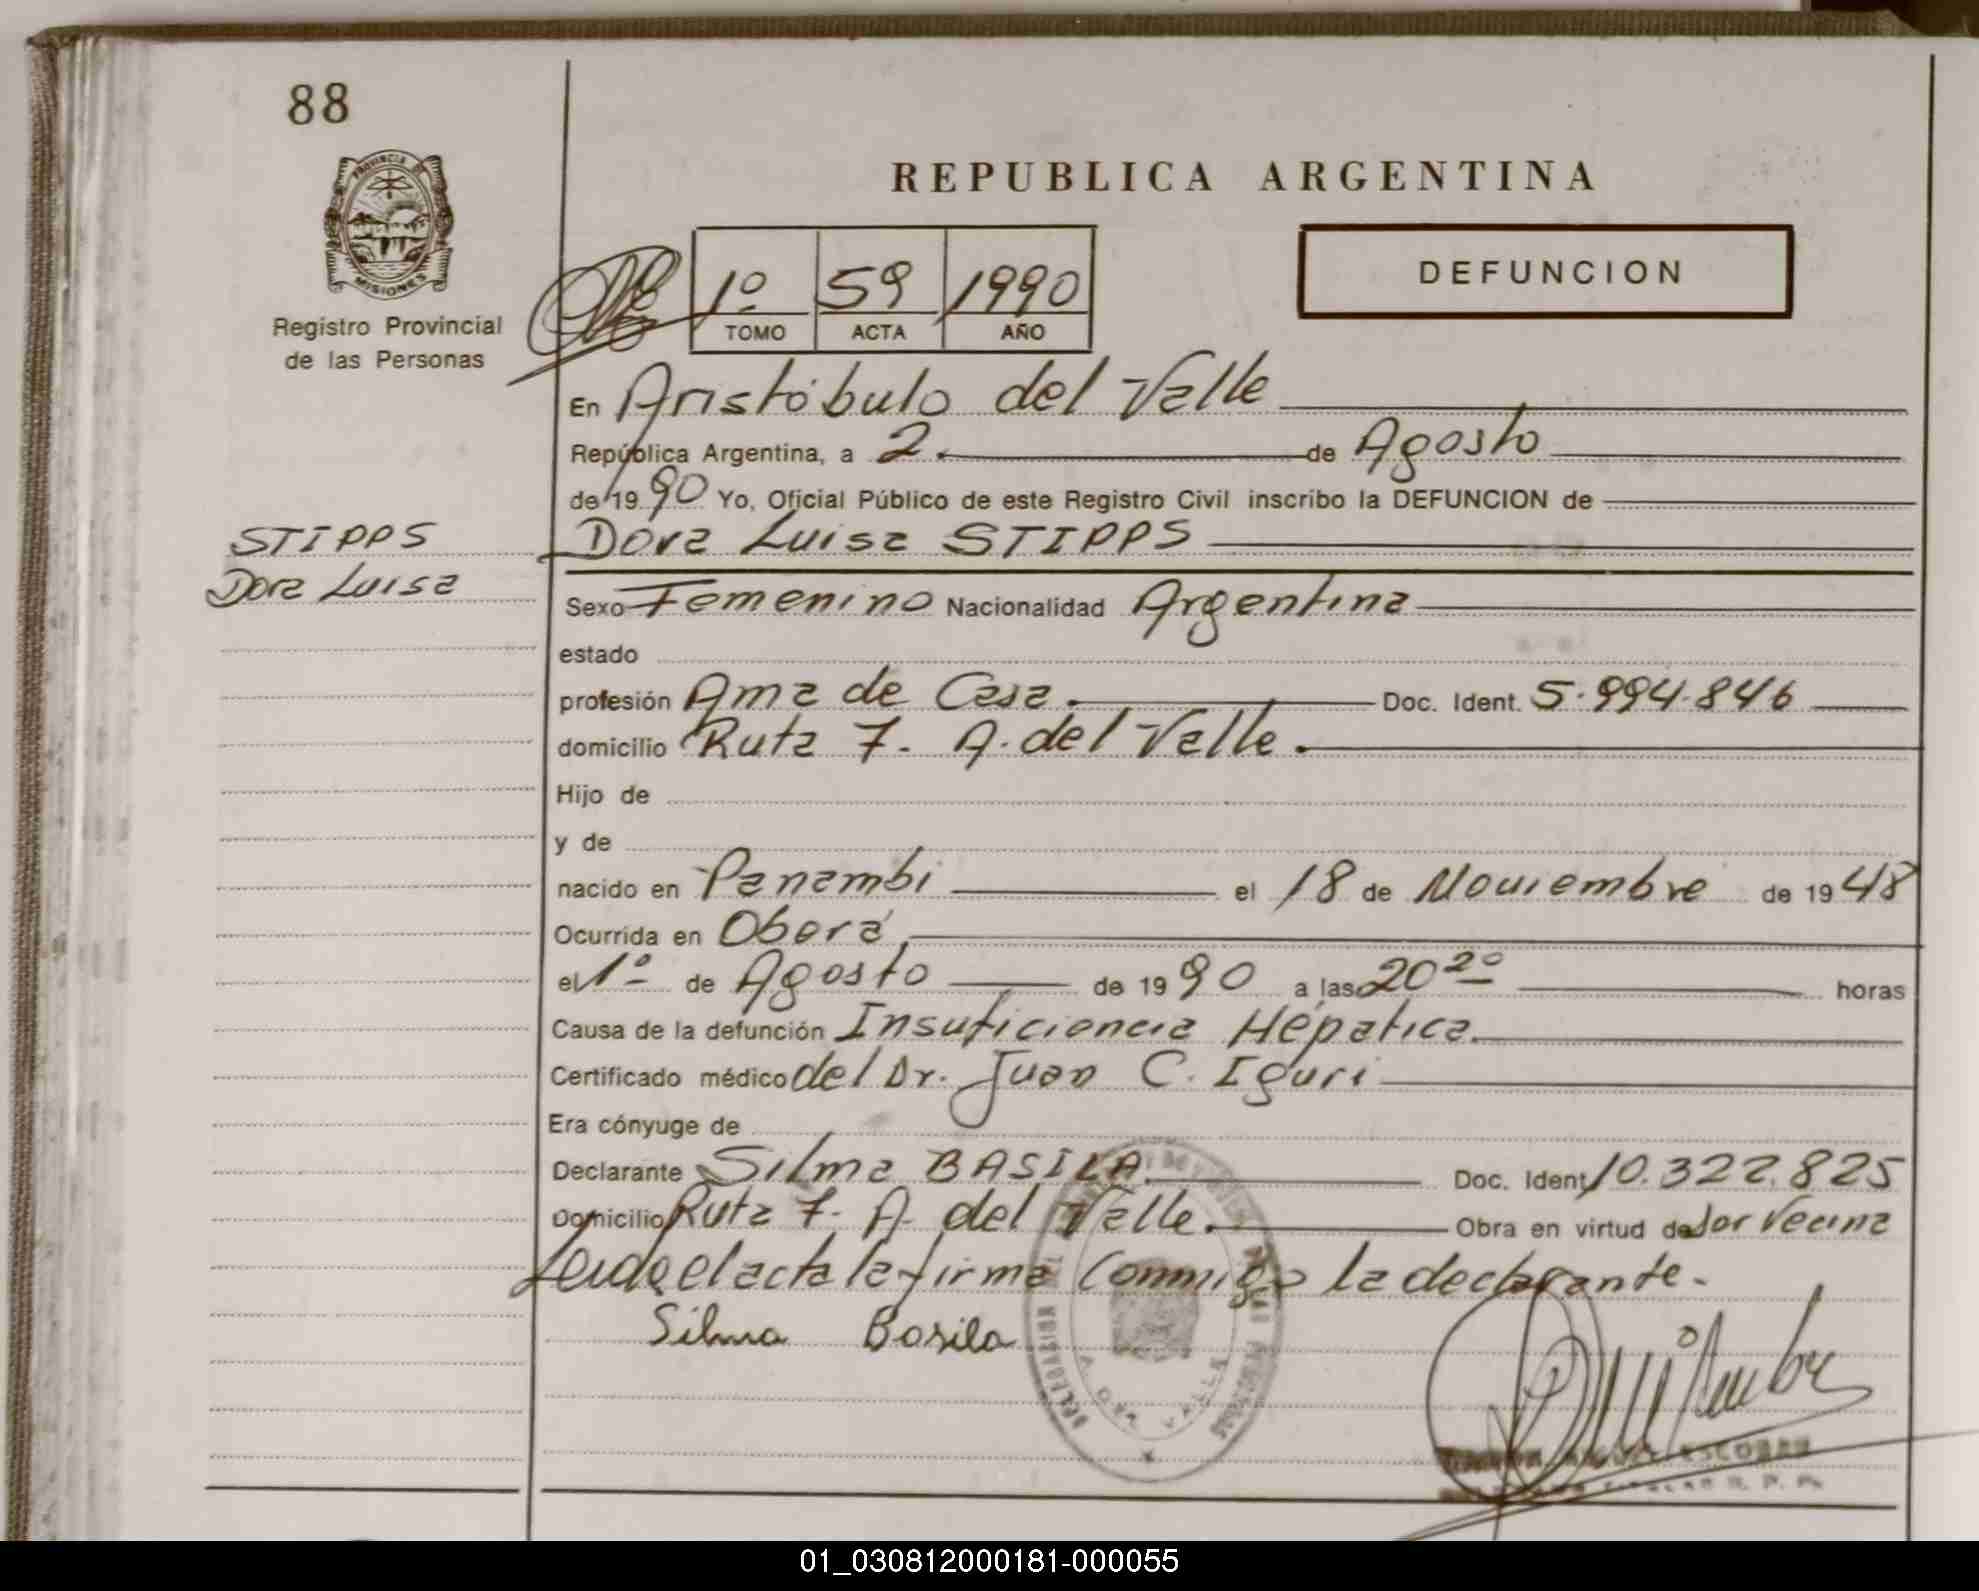 88
PROVINCIA DE
MISIONES
Registro Provincial
de las Personas
REPUBLICA ARGENTINA
DEFUNCION
1º 59 1990
TOMO ACTA AÑO
En Aristóbulo del Valle
República Argentina, a 2 de Agosto
de 1990 Yo, Oficial Público de este Registro Civil inscribo la DEFUNCION de
STIPPS
Dora Luisa
Dora Luisa STIPPS
Sexo Femenino Nacionalidad Argentina
estado
profesión Ama de Casa. Doc. Ident. 5.994.846
domicilio Ruta 7. A. del Valle.
Hijo de
y de
nacido en Panambi el 18 de Noviembre de 1948
Ocurrida en Oberá
el 1º de Agosto de 1990 a las 20 20 horas
Causa de la defunción Insuficiencia Hépatica.
Certificado médico del Dr. Juan C. Iguri
Era cónyuge de
Declarante Silma BASILA. Doc. Ident 10.322.825
Domicilio Ruta 7. A. del Valle. Obra en virtud de ser vecina
Leida el acta la firma conmigo la declarante.
Silma Basila
DELEGACION
A. DEL VALLE
ESCOBAR
R. P. P.
01_030812000181-000055